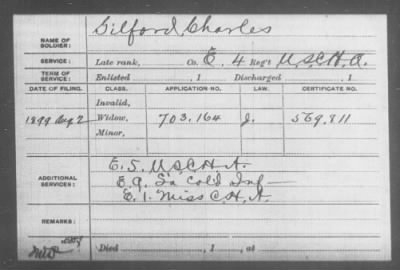 NAME OF SOLDIER: Gilford, Charles
SERVICE: Late rank, Co. E. 4 Reg't U.S.C.H.A.
TERM OF SERVICE: Enlisted , 1 Discharged , 1
DATE OF FILING. CLASS. APPLICATION NO. LAW. CERTIFICATE NO.
Invalid,
1899 Aug 2 Widow, 703.164 J. 569.811
Minor,
ADDITIONAL SERVICES: E. 5. U.S.C.H.A.
E. 9. La Col'd Inf
E. 1. Miss C.H.A.
REMARKS:
Died , 1 , at